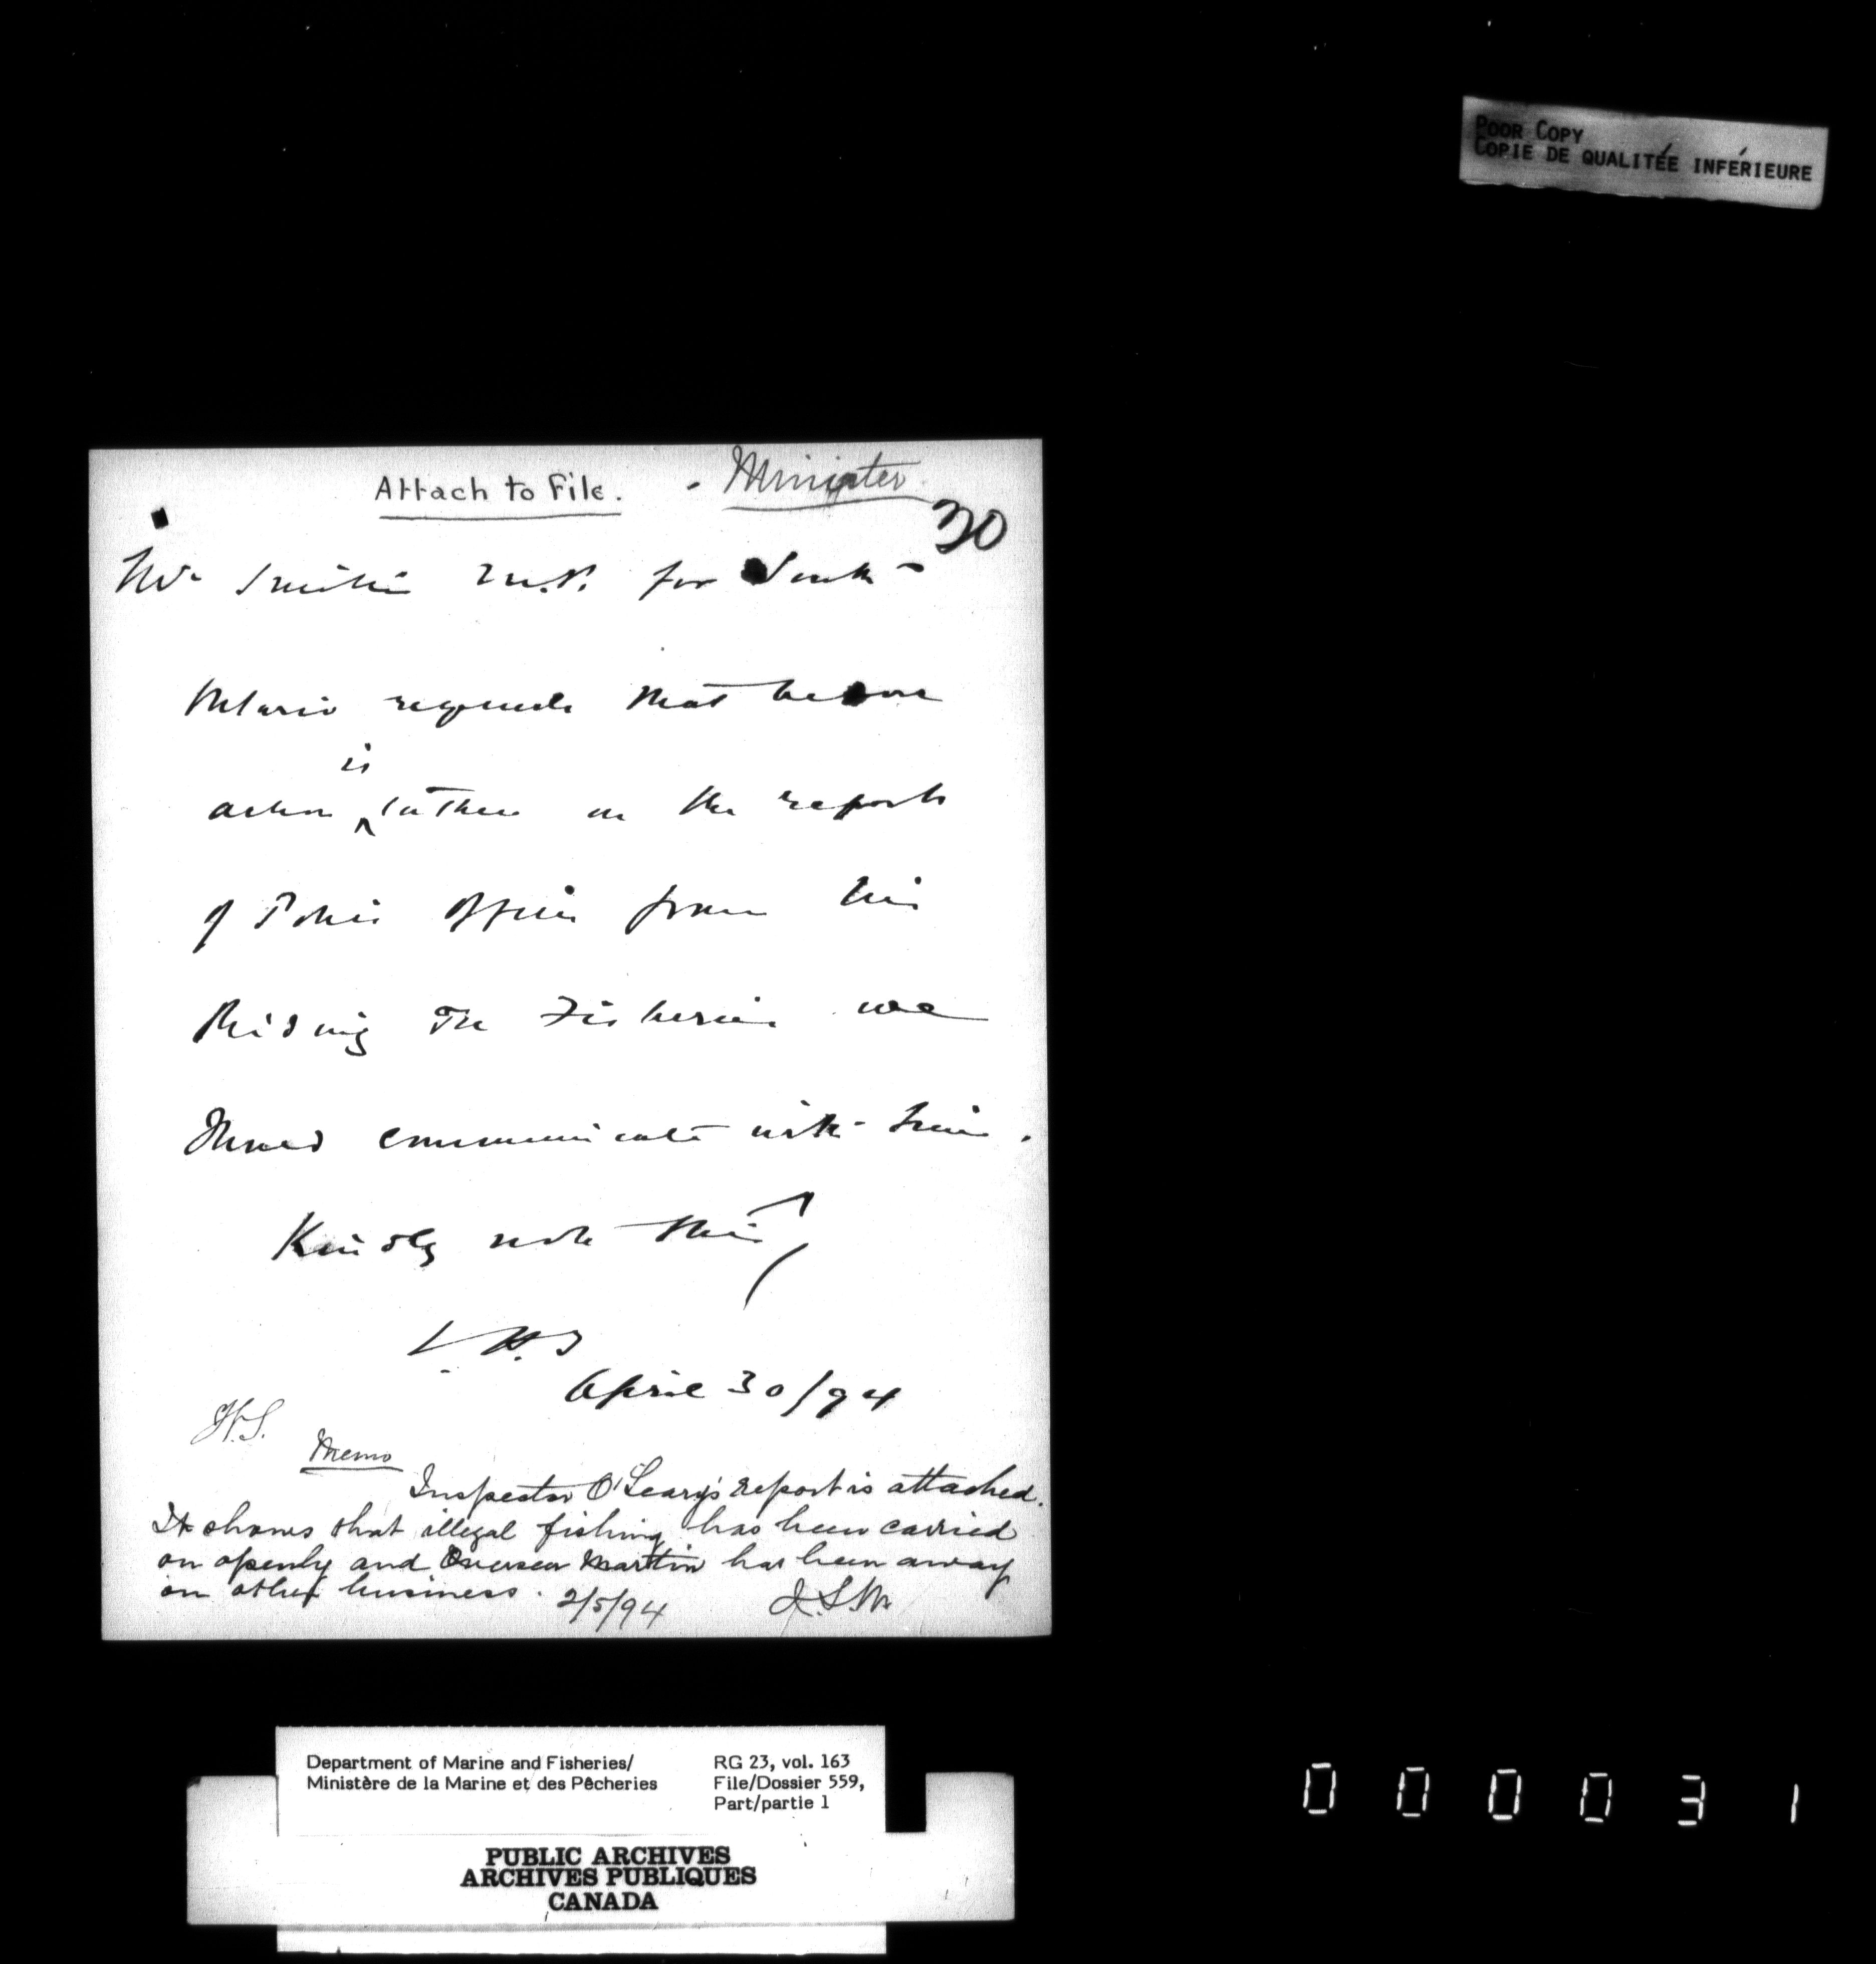 POOR COPY
COPIE DE QUALITÉE INFÉRIEURE
Attach to File. - Minister
30
Mr Smith M.P. for South
Ontario requests that before
is
action ^ taken on the reports
of Police Officer from his
Riding on Fisheries we
should communicate with him.
Kindly note this
April 30/94
H.S.
Memo
Inspector O'Leary's report is attached.
It shows that illegal fishing has been carried
on openly and Overseer Martin has been away
on other business. 2/5/94
Department of Marine and Fisheries/
Ministère de la Marine et des Pêcheries
RG 23, vol. 163
File/Dossier 559,
Part/partie 1
PUBLIC ARCHIVES
ARCHIVES PUBLIQUES
CANADA
000031